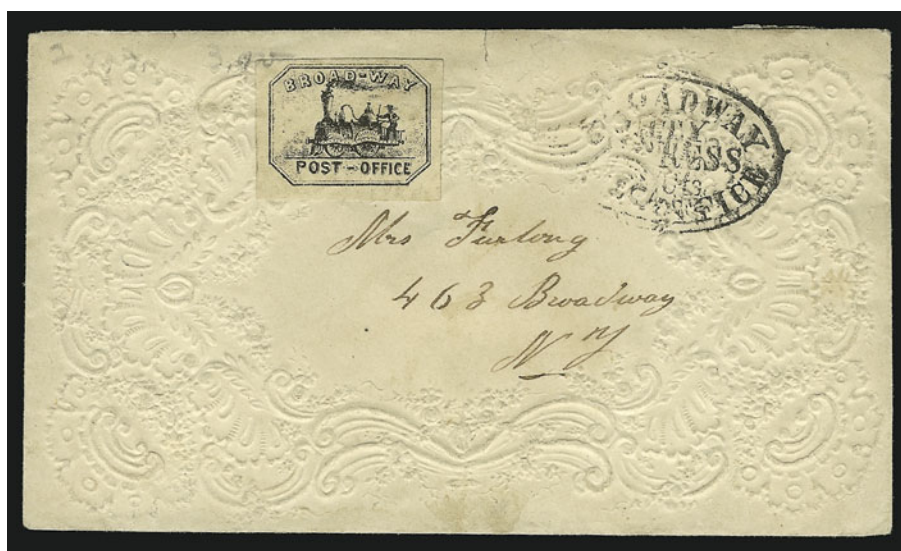 BROAD-WAY
POST-OFFICE
BROADWAY
CITY
EXPRESS
POST OFFICE
Mrs Furlong
463 Broadway
N Y